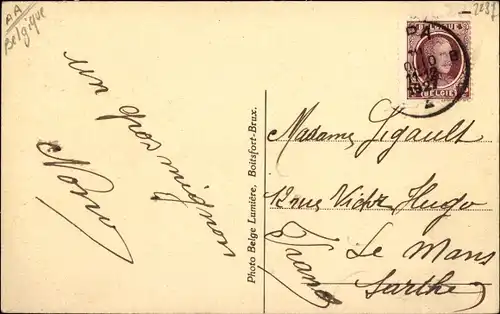 AA
Belgique
2237
BELGIE
un gros mignon
Nono
Photo Belge Lumière, Boitsfort-Brux.
Madame Gigault
12 rue Victor Hugo
Le Mans
Sarthe
France